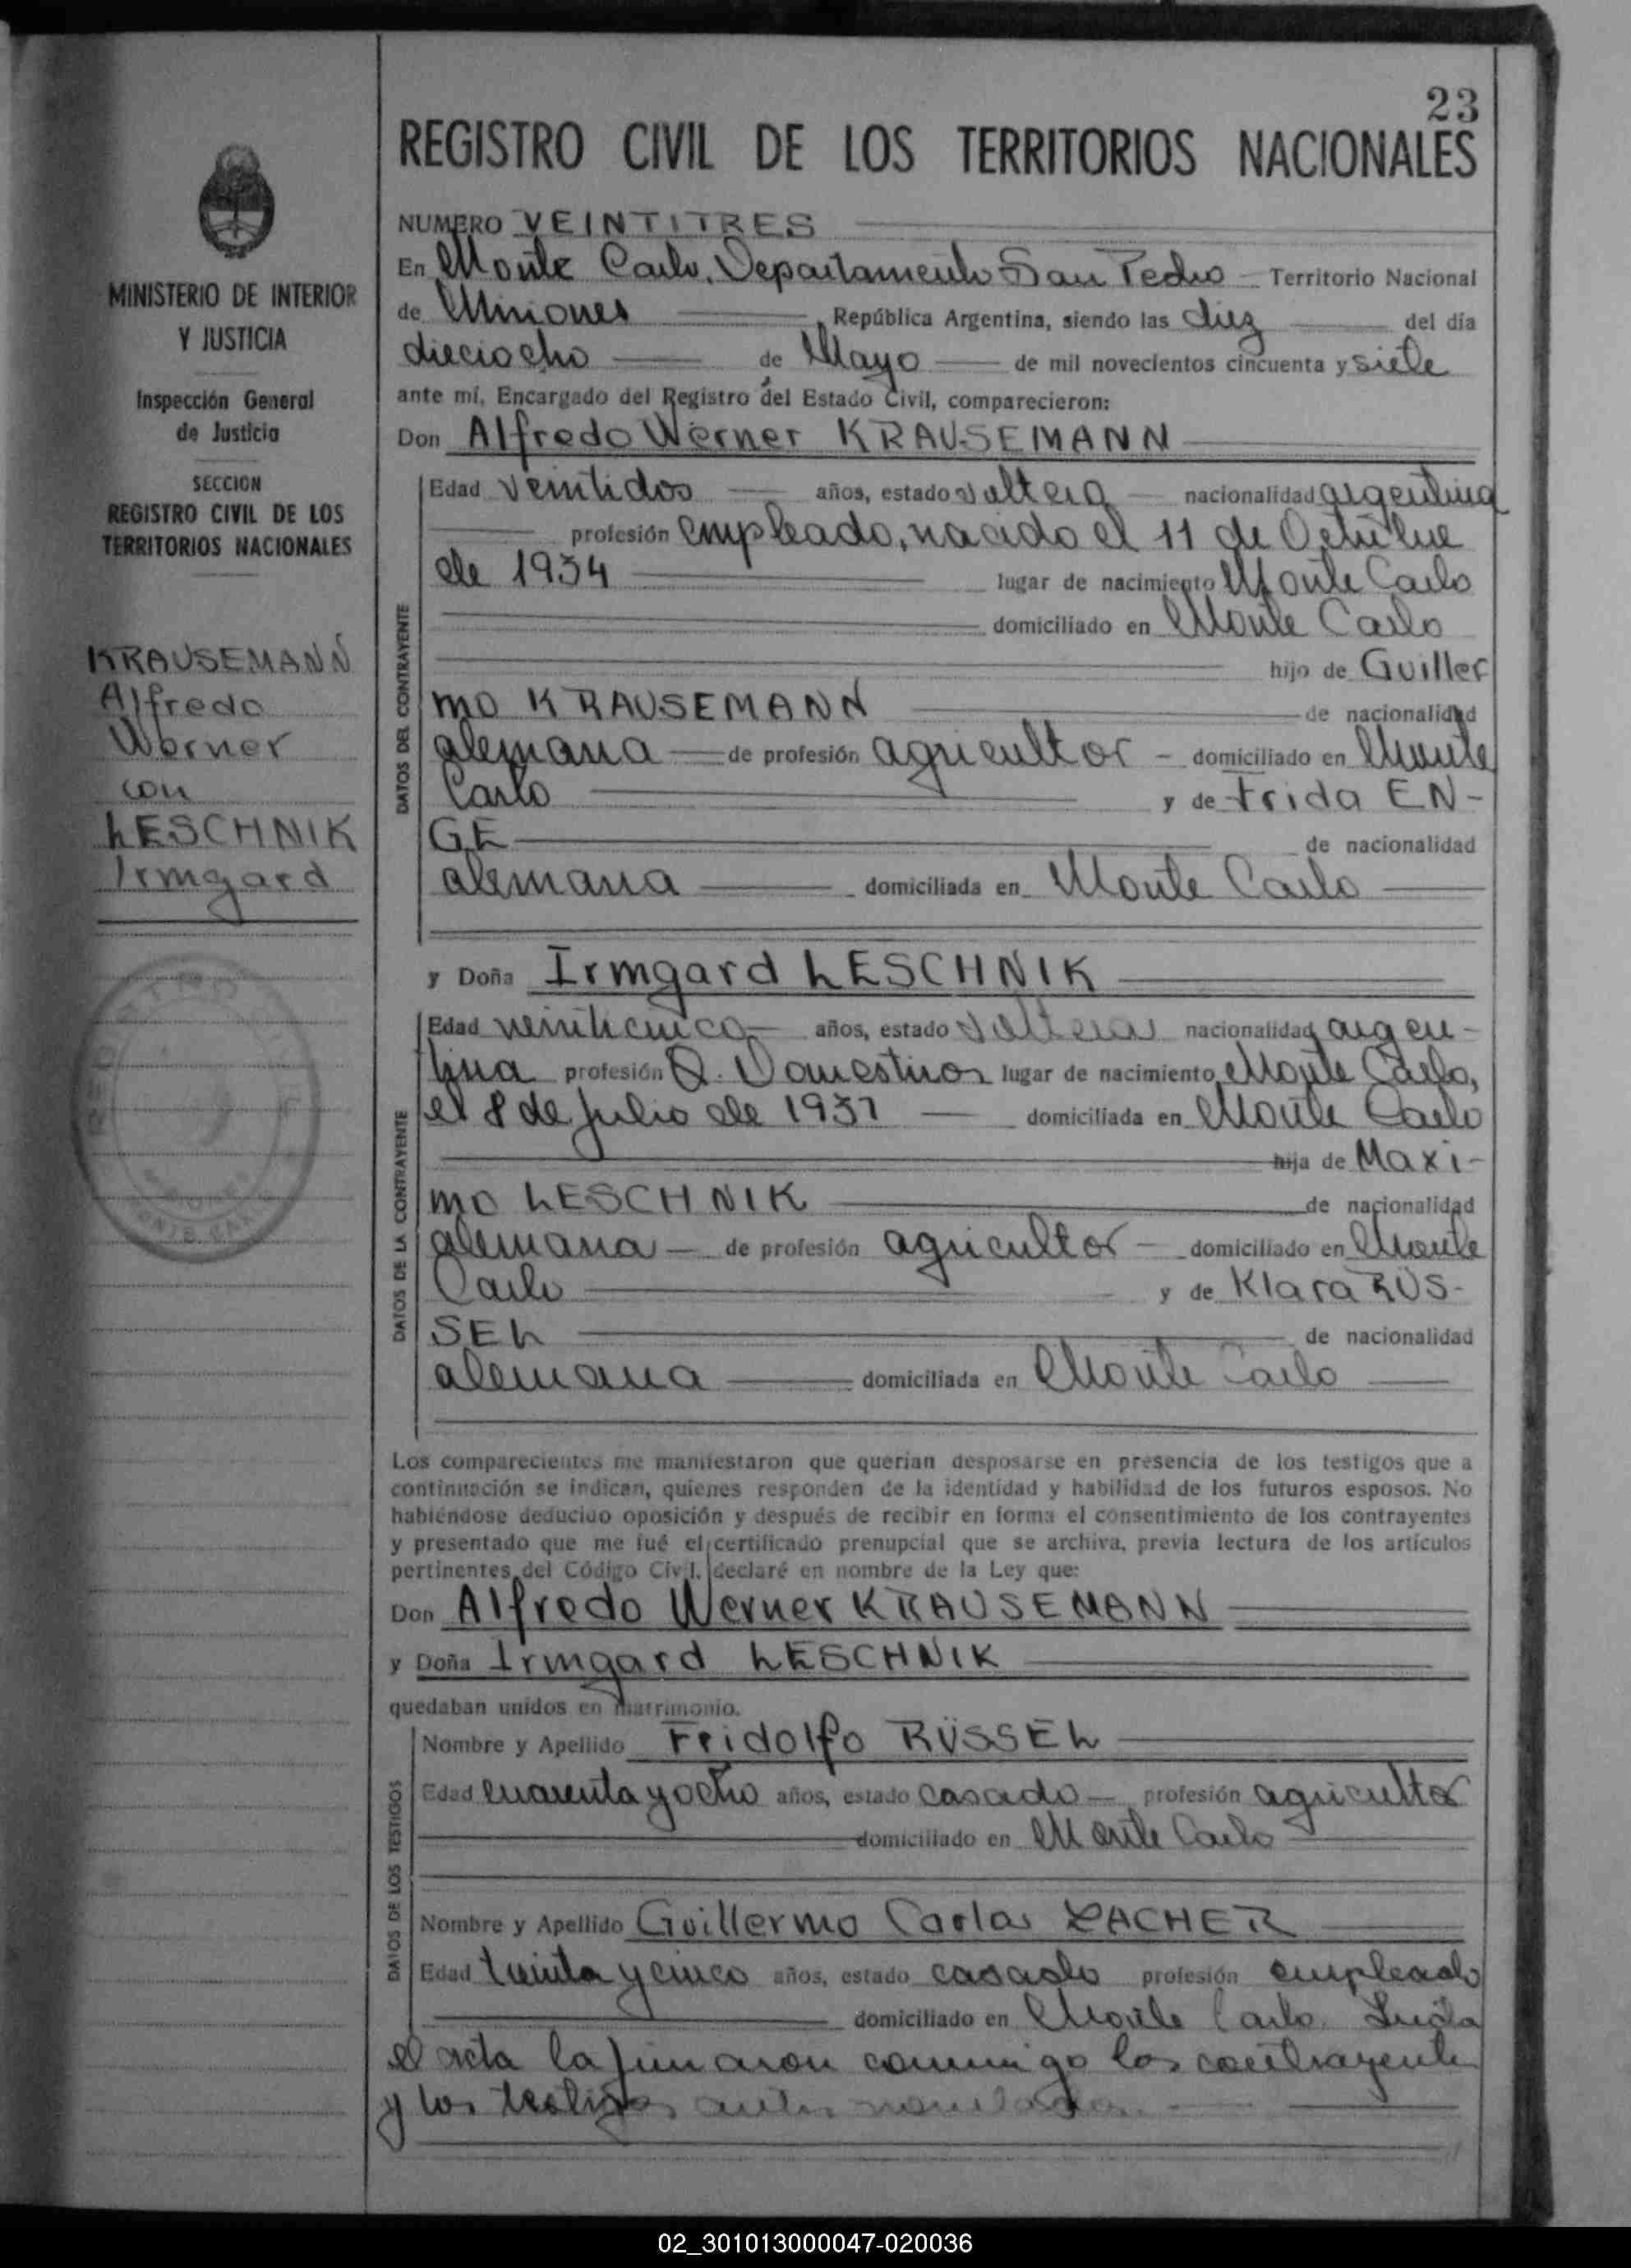 23
REGISTRO CIVIL DE LOS TERRITORIOS NACIONALES
MINISTERIO DE INTERIOR
Y JUSTICIA
Inspección General
de Justicia
SECCION
REGISTRO CIVIL DE LOS
TERRITORIOS NACIONALES
KRAUSEMANN
Alfredo
Werner
con
LESCHNIK
Irmgard
NUMERO VEINTITRES
En Monte Carlo, Departamento San Pedro Territorio Nacional
de Misiones República Argentina, siendo las diez del día
dieciocho de Mayo de mil novecientos cincuenta y siete
ante mí, Encargado del Registro del Estado Civil, comparecieron:
Don Alfredo Werner KRAUSEMANN
DATOS DEL CONTRAYENTE
Edad veintidos años, estado soltero nacionalidad argentina
profesión empleado, nacido el 11 de Octubre
de 1934 lugar de nacimiento Monte Carlo
domiciliado en Monte Carlo
hijo de Guiller
mo KRAUSEMANN de nacionalidad
alemana de profesión agricultor - domiciliado en Monte
Carlo y de Frida EN-
GE de nacionalidad
alemana domiciliada en Monte Carlo
y Doña Irmgard LESCHNIK
DATOS DE LA CONTRAYENTE
Edad veinticinco años, estado soltera nacionalidad argen-
tina profesión Q. Domesticos lugar de nacimiento Monte Carlo,
el 8 de Julio de 1931 domiciliada en Monte Carlo
hija de Maxi-
mo LESCHNIK de nacionalidad
alemana de profesión agricultor - domiciliado en Monte
Carlo y de Klara RÜS-
SEL de nacionalidad
alemana domiciliada en Monte Carlo
Los comparecientes me manifestaron que querian desposarse en presencia de los testigos que a
continuación se indican, quienes responden de la identidad y habilidad de los futuros esposos. No
habiéndose deducido oposición y después de recibir en forma el consentimiento de los contrayentes
y presentado que me fué el certificado prenupcial que se archiva, previa lectura de los artículos
pertinentes del Código Civil, declaré en nombre de la Ley que:
Don Alfredo Werner KRAUSEMANN
y Doña Irmgard LESCHNIK
quedaban unidos en matrimonio.
DATOS DE LOS TESTIGOS
Nombre y Apellido Fridolfo RÜSSEL
Edad cuarenta y ocho años, estado casado profesión agricultor
domiciliado en Monte Carlo
Nombre y Apellido Guillermo Carlos ZACHER
Edad treinta y cinco años, estado casado profesión empleado
domiciliado en Monte Carlo. Leida
el acta la firmaron conmigo los contrayentes
y los testigos antes nombrados.
02_301013000047-020036